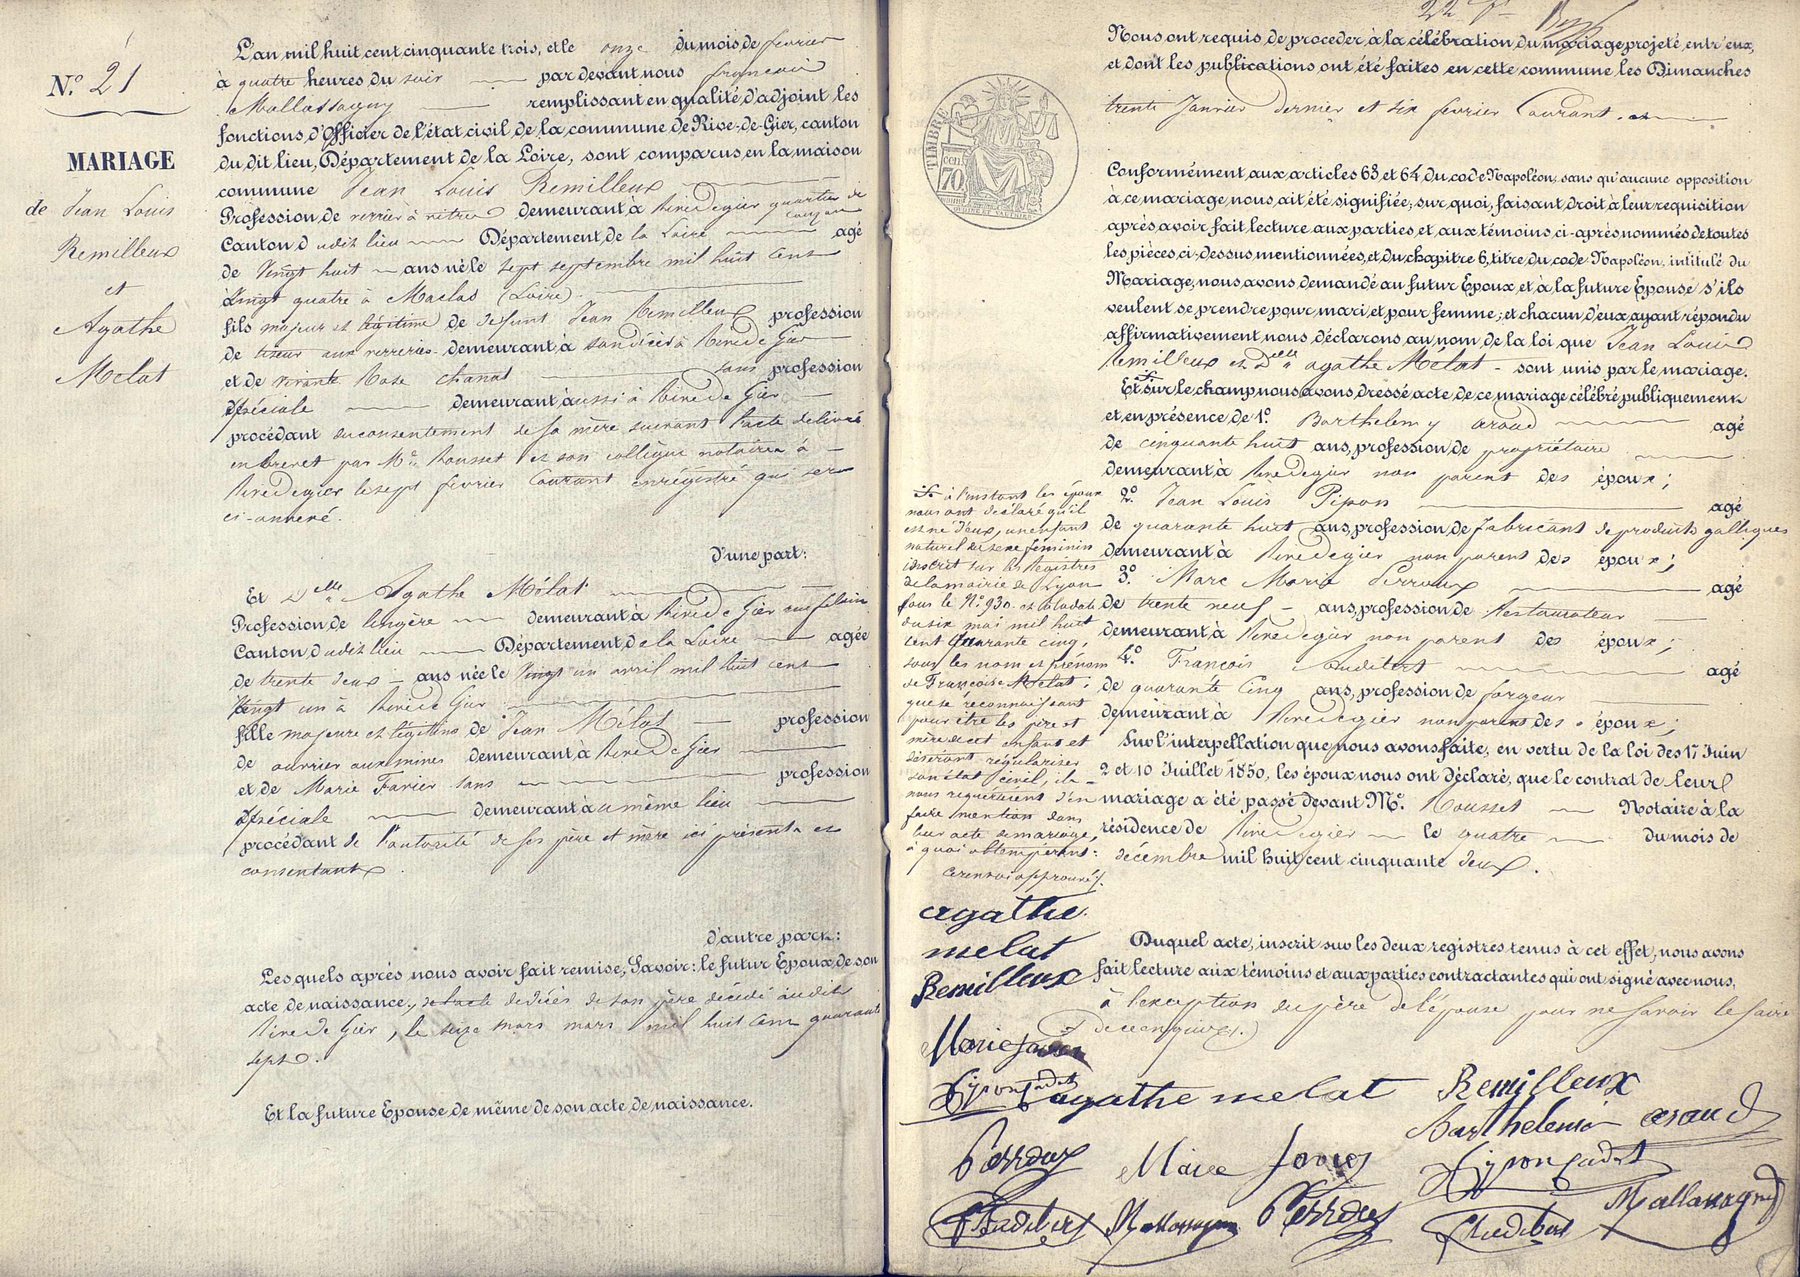 N.° 21
MARIAGE
de Jean Louis
Remilleux
et
Agathe
Melat
L'an mil huit cent cinquante trois, et le onze du mois de février
à quatre heures du soir par devant nous françois
Mallassagny remplissant en qualité d'adjoint les
fonctions d'Officier de l'état civil de la commune de Rive-de-Gier, canton
du dit lieu, Département de la Loire, sont comparus en la maison
commune Jean Louis Remilleux
Profession de verrier à vitres demeurant à Rivedegier quartier de
couzon
Canton dudit lieu Département de la Loire agé
de Vingt huit ans né le sept septembre mil huit cent
Vingt quatre à Maclas (Loire)
fils majeur et légitime de défunt Jean Remilleux profession
de tiseur aux verreries demeurant à son décès à Rive de Gier
et de vivante Rose chanat sans profession
spéciale demeurant aussi à Rive de Gier
procédant du consentement de sa mère suivant l'acte délivré
en brevet par Me. Rousset et son collègue notaires à
Rivedegier le sept février Courant enrégistré qui sera
ci-annexé.
D'une part:
Et Delle. Agathe Mélat
Profession de lingère demeurant à Rive de Gier rue feloin
Canton dudit lieu Département de la Loire agée
de trente deux ans née le Vingt un avril mil huit cent
Vingt un à Rive de Gier
fille majeure et légitime de Jean Mélat profession
de ouvrier aux mines demeurant à Rive de Gier
et de Marie Favier sans profession
spéciale demeurant au même lieu
procédant de l'autorité de ses père et mère ici présents et
consentants
d'autre part:
Les quels après nous avoir fait remise, Savoir: le futur Epoux, de son
acte de naissance, et l'acte de décès de son père décédé audit
Rive de Gier, le seize mars mars mil huit cent quarante
sept.
Et la future Epouse, de même de son acte de naissance.
22
Nous ont requis de proceder à la célébration du mariage projeté entr'eux,
et dont les publications ont été faites en cette commune les Dimanches
trente Janvier dernier et six février Courant.
TIMBRE
cen.
70
Conformément aux articles 63 et 64 du code Napoléon, sans qu'aucune opposition
à ce mariage nous ait été signifiée; sur quoi, faisant droit à leur requisition
après avoir fait lecture aux parties et aux témoins ci-après nommés de toutes
les pièces ci-dessus mentionnées, et du chapitre 6, titre du code Napoléon intitulé du
Mariage, nous avons demandé au futur Epoux et à la future Epouse s'ils
veulent se prendre pour mari et pour femme; et chacun d'eux ayant répondu
affirmativement nous déclarons au nom de la loi que Jean Louis
Remilleux et Delle agathe Mélat sont unis par le mariage.
Et sur le champ nous avons dressé acte de ce mariage célébré publiquement
et en présence de 1.° Barthelemy araud agé
de cinquante huit ans, profession de propriétaire
demeurant à Rivedegier non parent des époux;
2.° Jean Louis Pipon agé
de quarante huit ans, profession de fabricant de produits galliques
demeurant à Rivedegier non parent des époux;
3.° Marc Marie Perroux agé
de trente neuf ans, profession de Restaurateur
demeurant à Rivedegier non parent des époux;
4.° François Audibert agé
de quarante cinq ans, profession de forgeur
demeurant à Rivedegier non parent des époux;
Sur l'interpellation que nous avons faite, en vertu de la loi des 17 Juin
2 et 10 Juillet 1850, les époux nous ont déclaré, que le contrat de leur
mariage a été passé devant Me. Rousset Notaire à la
résidence de Rivedegier le quatre du mois de
décembre mil huit cent cinquante deux.
à l'instant les époux
nous ont déclaré qu'il
est né d'eux, un enfant
naturel du sexe féminin
inscrit sur les Registres
de la mairie de Lyon
sous le N° 930 et la date
du six mai mil huit
cent quarante cinq,
sous les nom et prénom
de Françoise Melat;
que se reconnaissant
pour être les père et
mère de cet enfant et
désirant régulariser
son état civil, ils
nous requéraient d'en
faire mention dans
leur acte de mariage,
à quoi obtempérant:
ce renvoi approuvé.
agathe
melat
Remilleux
Marie favier
Duquel acte, inscrit sur les deux registres tenus à cet effet, nous avons
fait lecture aux témoins et aux parties contractantes qui ont signé avec nous,
à l'exception du père de l'épouse pour ne savoir le faire
de ce enquis.)
Pipon Cadet agathe melat Remilleux
Barthelemi araud
Perroux Marie favier Pipon Cadet
Audibert Mallassagny Perroux Audibert Mallassagny